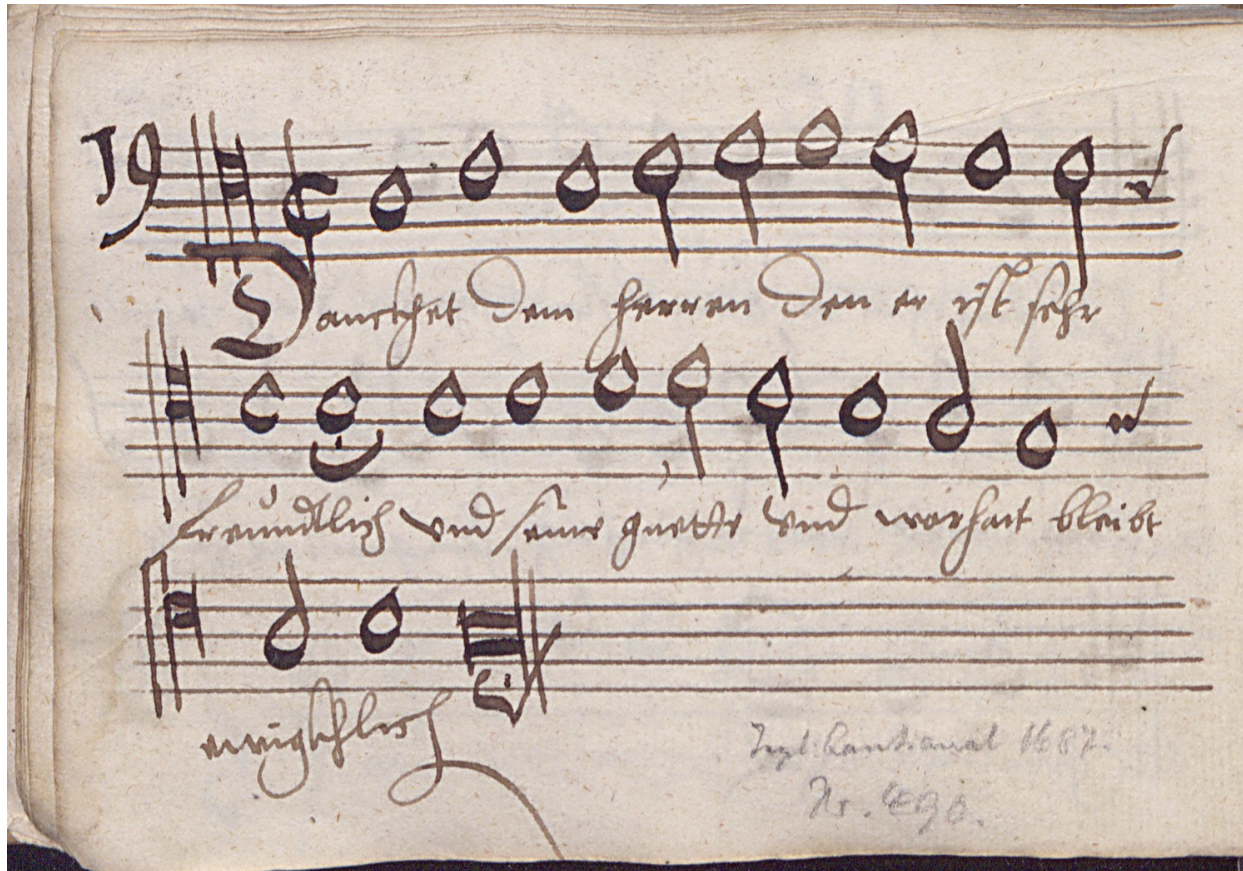 19
Danckhet dem herren den er ist sehr
freündtlich vnd seine guette vnd warhait bleibt
ewigkhlich
Cantional 1687.
Nr. 490.